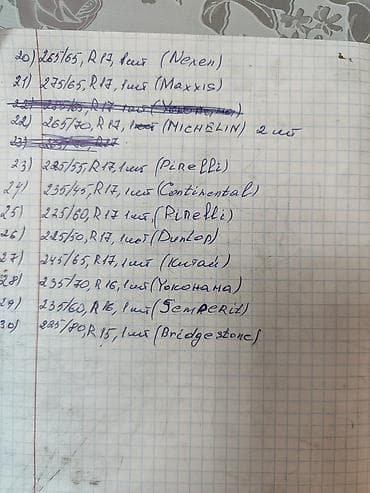 20) 265/65, R17, 1шт (Nexen)
21) 275/65, R17, 1шт (Maxxis)
22) 265/70, R17, (MICHELIN) 2 шт
23) 225/55, R17, 1шт (Pirelli)
24) 235/45, R17, 1шт (Continental)
25) 225/60, R17 1шт, (Pirelli)
26) 225/50, R17, 1шт (Dunlop)
27) 245/65, R17, 1шт (Китай)
28) 235/70, R16, 1шт (Yokohama)
29) 235/60, R16, 1шт (Semperit)
30) 225/80, R15, 1шт (Bridgestone)